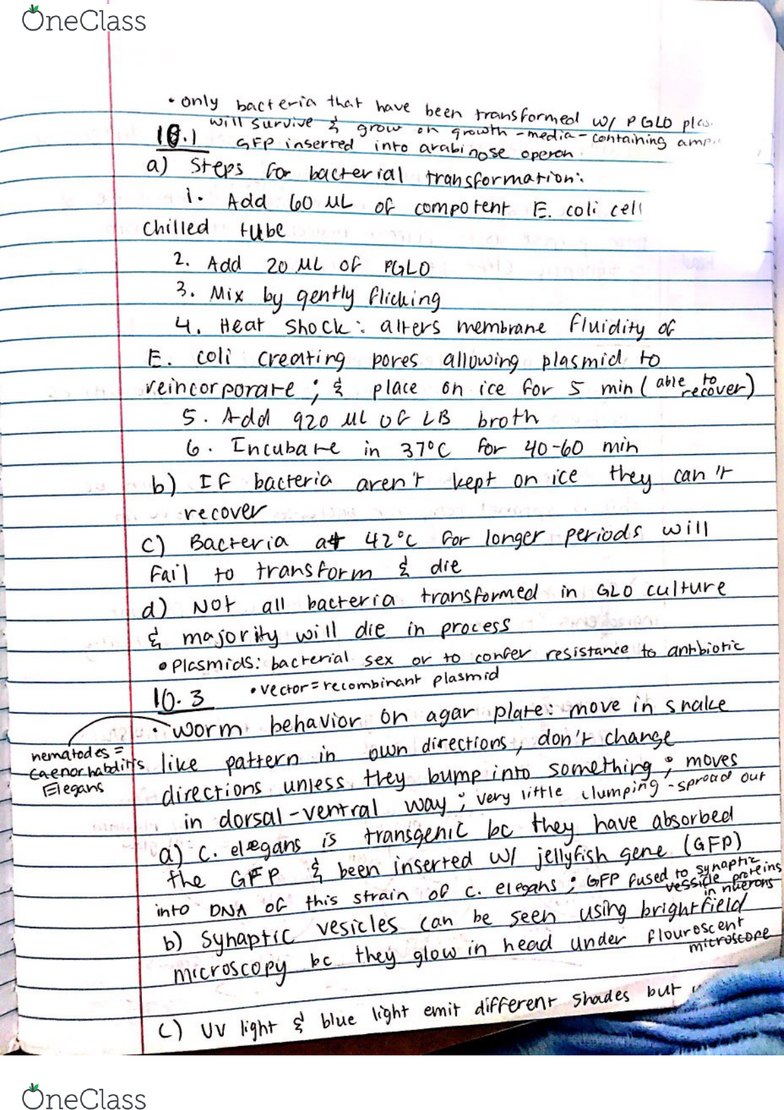 OneClass
• only bacteria that have been transformed w/ PGLO
will survive & grow on growth-media-containing
10.1 GFP inserted into arabinose operon
a) Steps for bacterial transformation:
1. Add 60 ML of compotent E. coli cell
chilled tube
2. Add 20 ML of PGLO
3. Mix by gently flicking
4. Heat Shock: alters membrane fluidity of
E. coli creating pores allowing plasmid to
reincorporate ; & place on ice for 5 min (able to recover)
5. Add 920 ML OF LB broth
6. Incubate in 37°C for 40-60 min
b) IF bacteria aren't kept on ice they can't
recover
c) Bacteria at 42°C for longer periods will
fail to transform & die
d) Not all bacteria transformed in GLO culture
& majority will die in process
• Plasmids: bacterial sex or to confer resistance to antibiotic
10.3 • vector = recombinant plasmid
• worm behavior on agar plate: move in snake
nematodes = Caenorhabditis Elegans
like pattern in own directions, don't change
directions unless they bump into something ; moves
in dorsal-ventral way ; very little clumping - spread out
a) C. elegans is transgenic bc they have absorbed
the GFP & been inserted w/ jellyfish gene (GFP)
into DNA of this strain of C. elegans ; GFP fused to synaptic vessicle proteins in nuerons
b) Synaptic vesicles can be seen using brightfield
microscopy bc they glow in head under flouroscent microscope
c) UV light & blue light emit different shades but
OneClass